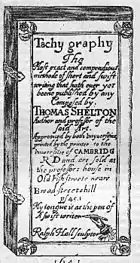 Tachy graphy
The
Most exact and compendious
methode of short and swift
writing that hath ever yet
beene published by any
Composed by
THOMAS SHELTON
Author and professor of the
said Art.
Approoved by both Unyversities
printed by the printer to the
Universitie of CAMBRIDG
and are sould at
the professors house in
Old Fishstreete neare
Bread streete hill
Psa 45.1
My tongue is as the pen of
A swift writer
Ralph Hall Sculpsit
1641